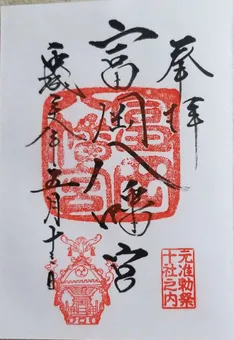 奉拝
富岡八幡宮
五月十三日
元准勅祭
十社之内